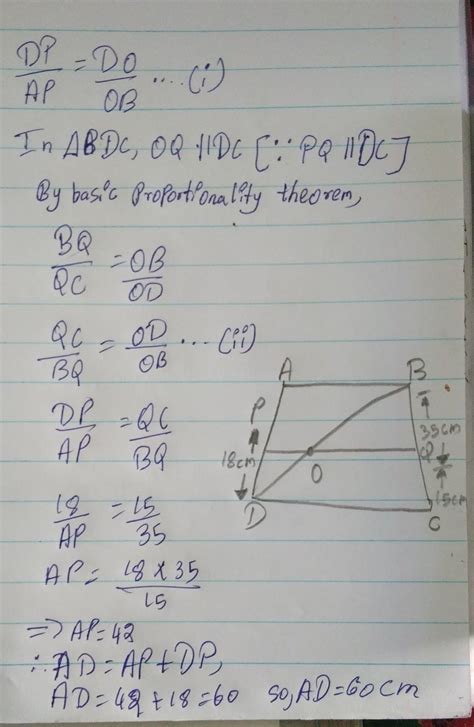 DP/AP = DO/OB .... (i)
In ΔBDC, OQ || DC [∵ PQ || DC]
By basic Proportionality theorem,
BQ/QC = OB/OD
QC/BQ = OD/OB ... (ii)
DP/AP = QC/BQ
18/AP = 15/35
AP = 18 × 35/15
=> AP = 42
∴ AD = AP + DP,
AD = 42 + 18 = 60 so, AD = 60 cm
A B
P
35cm
18cm
Q
O
15cm
D
C